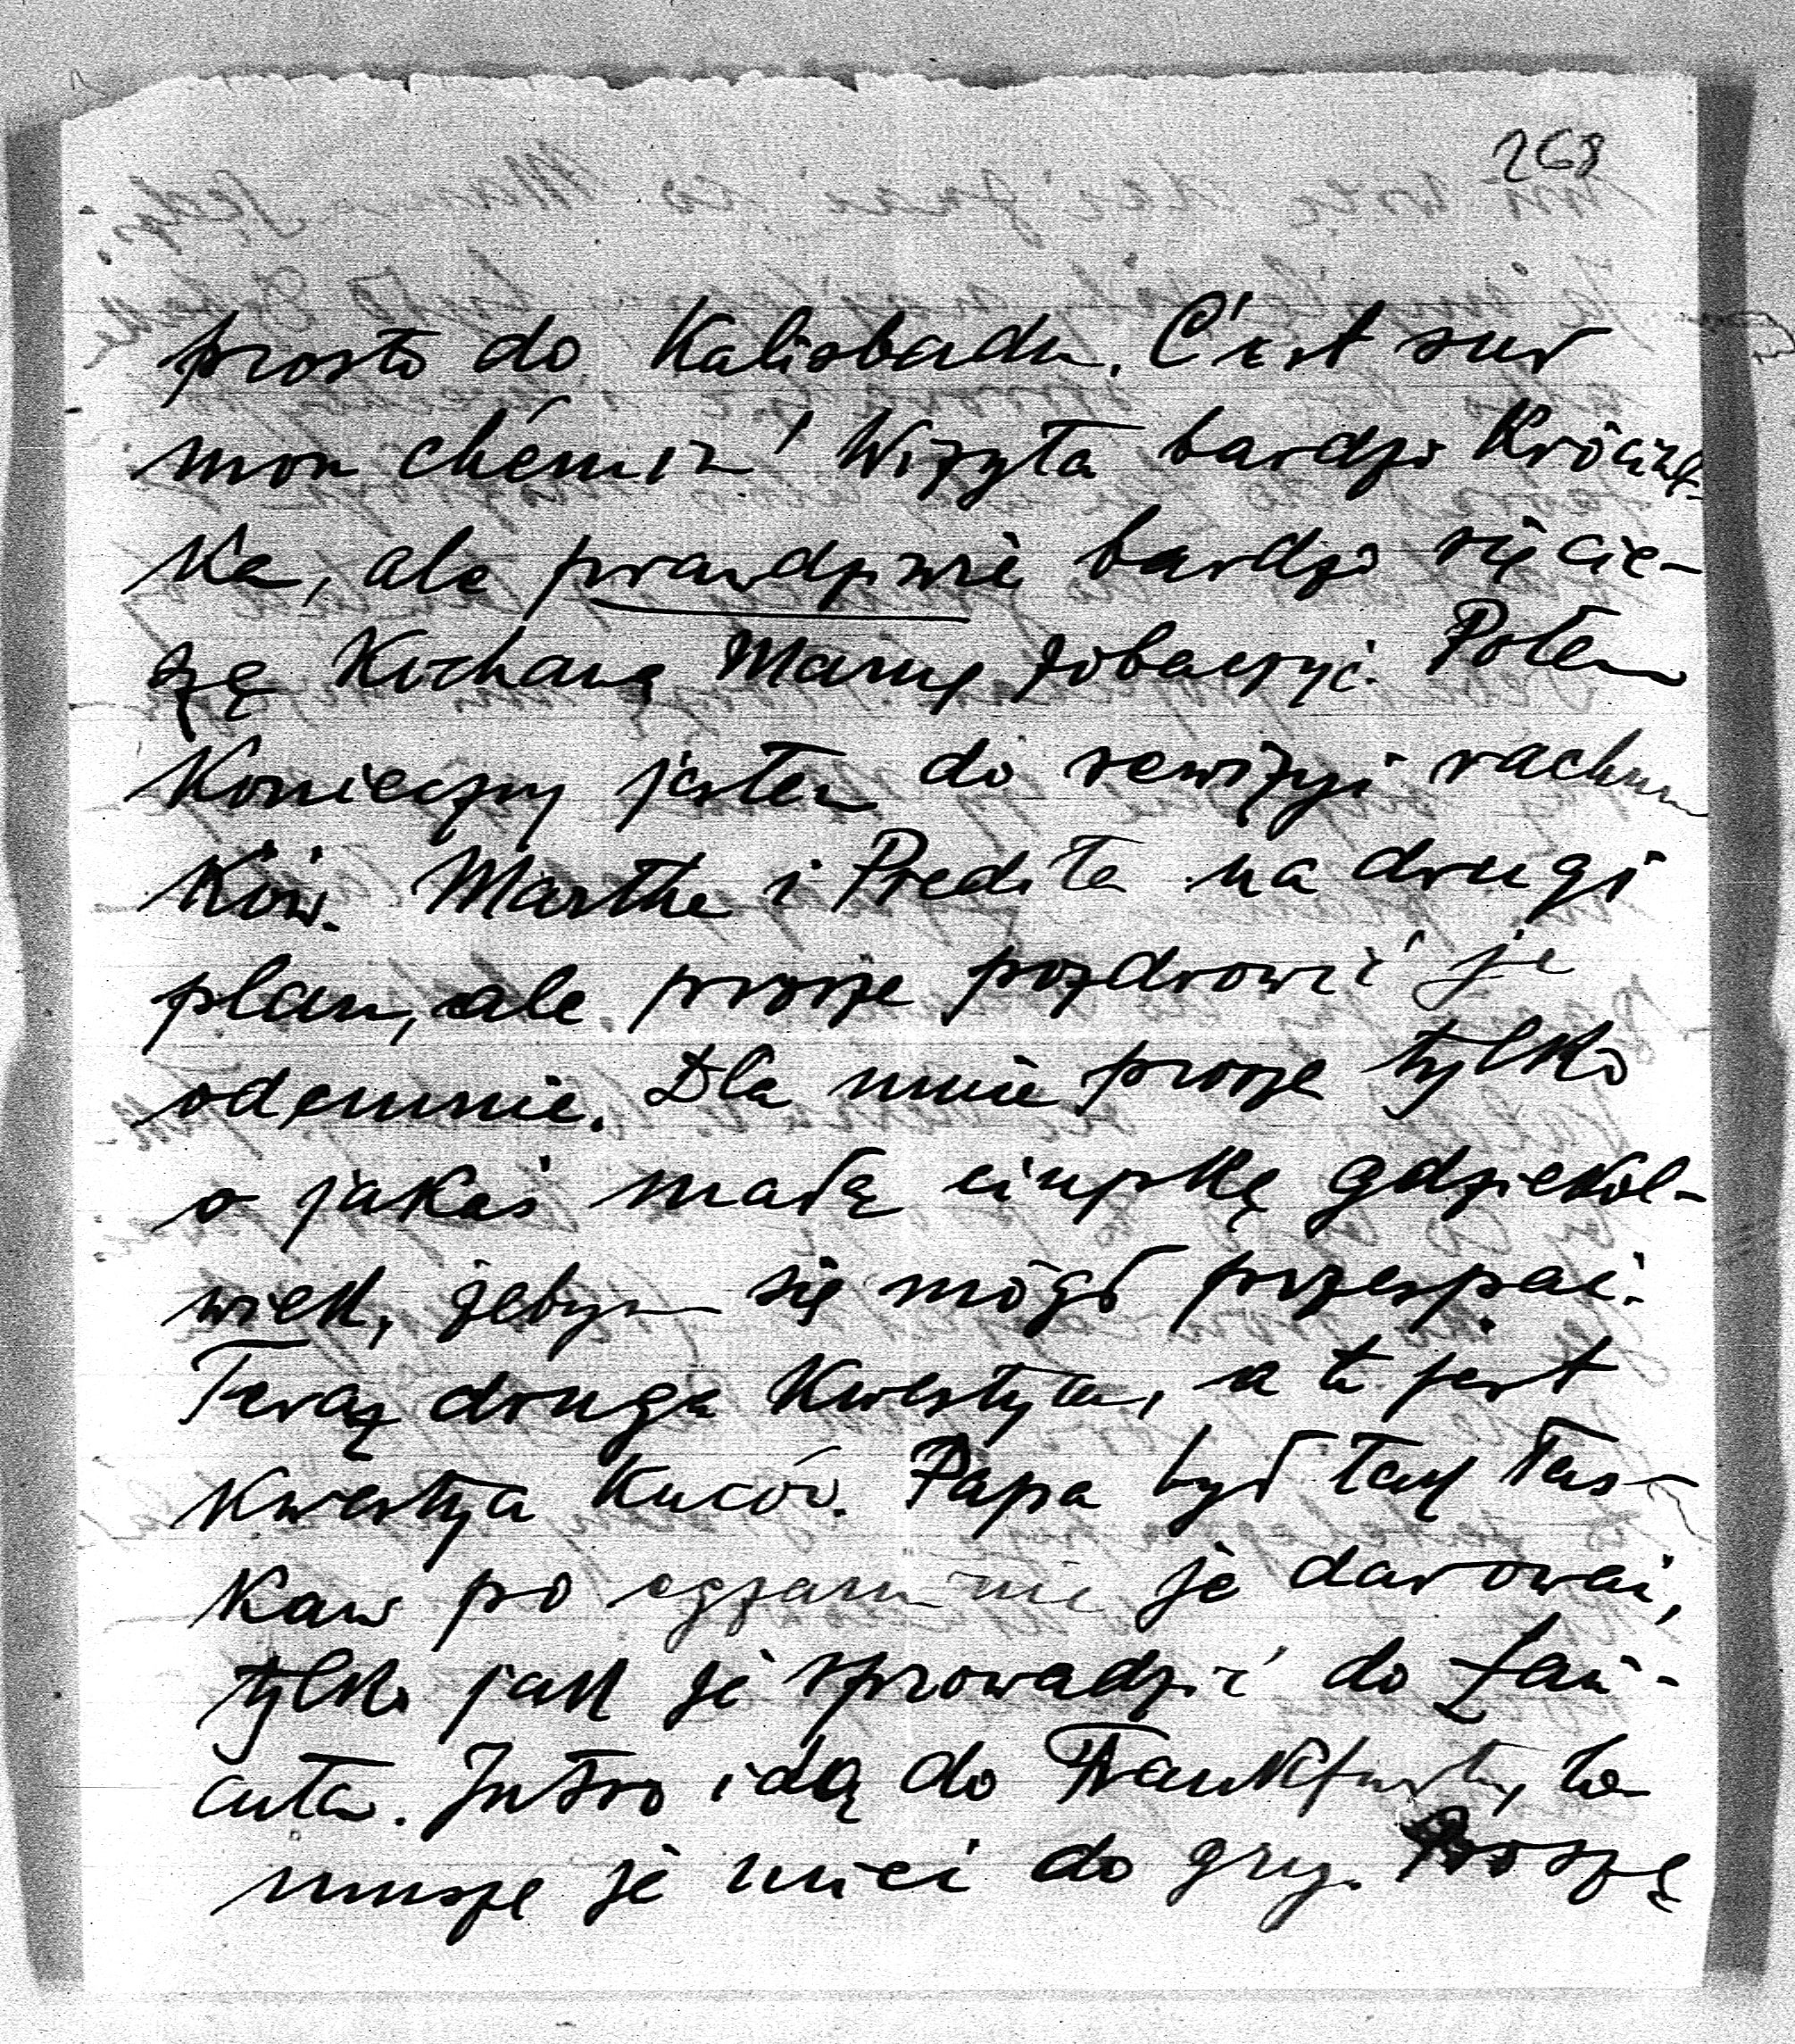 268
prosto do Kalisbadu. C'est sur
mon chémin! Wizyta bardzo króciut-
ka, ale prawdziwie bardzo się cie-
szę Kochaną Mamę zobaczyć. Potem
Konieczny jestem do rewizyi rachun
ków. Marthe i Predita na drugi
plan, ale proszę pozdrowić je
odemnie. Dla mnie proszę tylko
o jakaś małą ciupkę gdziekol-
wiek, żebym się mógł przespać.
Teraz druga kwestya, a to jest
kwestya Kuców. Papa był tak łas-
kaw po egzaminie je darować,
tylko jak je sprowadzić do Łań-
cuta. Jutro idą do Frankfurtu, bo
muszę je mieć do gry. Proszę